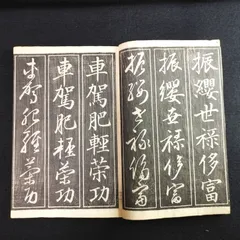 振纓世祿侈富
振纓世祿侈富
振纓世祿侈富
車駕肥輕策功
車駕肥輕策功
車駕肥輕策功